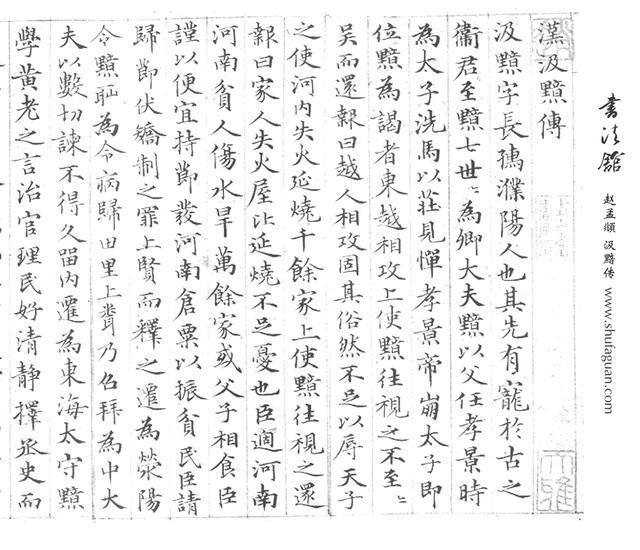 書法館
赵孟頫 汲黯传 www.shufaguan.com
漢汲黯傳
汲黯字長孺濮陽人也其先有寵於古之
衛君至黯七世〻為卿大夫黯以父任孝景時
為太子洗馬以莊見憚孝景帝崩太子即
位黯為謁者東越相攻上使黯往視之不至〻
吳而還報曰越人相攻固其俗然不足以辱天子
之使河內失火延燒千餘家上使黯往視之還
報曰家人失火屋比延燒不足憂也臣適河南
河南貧人傷水旱萬餘家或父子相食臣
謹以便宜持節發河南倉粟以振貧民臣請
歸節伏矯制之罪上賢而釋之遷為滎陽
令黯恥為令病歸田里上聞乃召拜為中大
夫以數切諫不得久留內遷為東海太守黯
學黃老之言治官理民好清靜擇丞史而